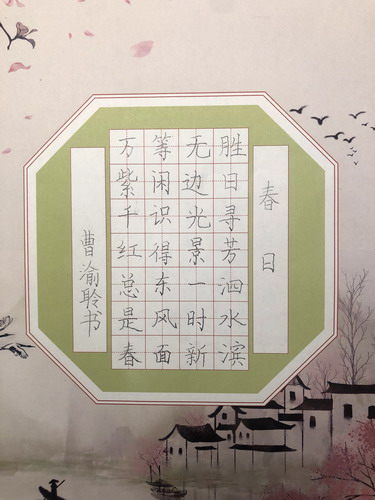 春日
胜日寻芳泗水滨
无边光景一时新
等闲识得东风面
万紫千红总是春
曹渝聆书